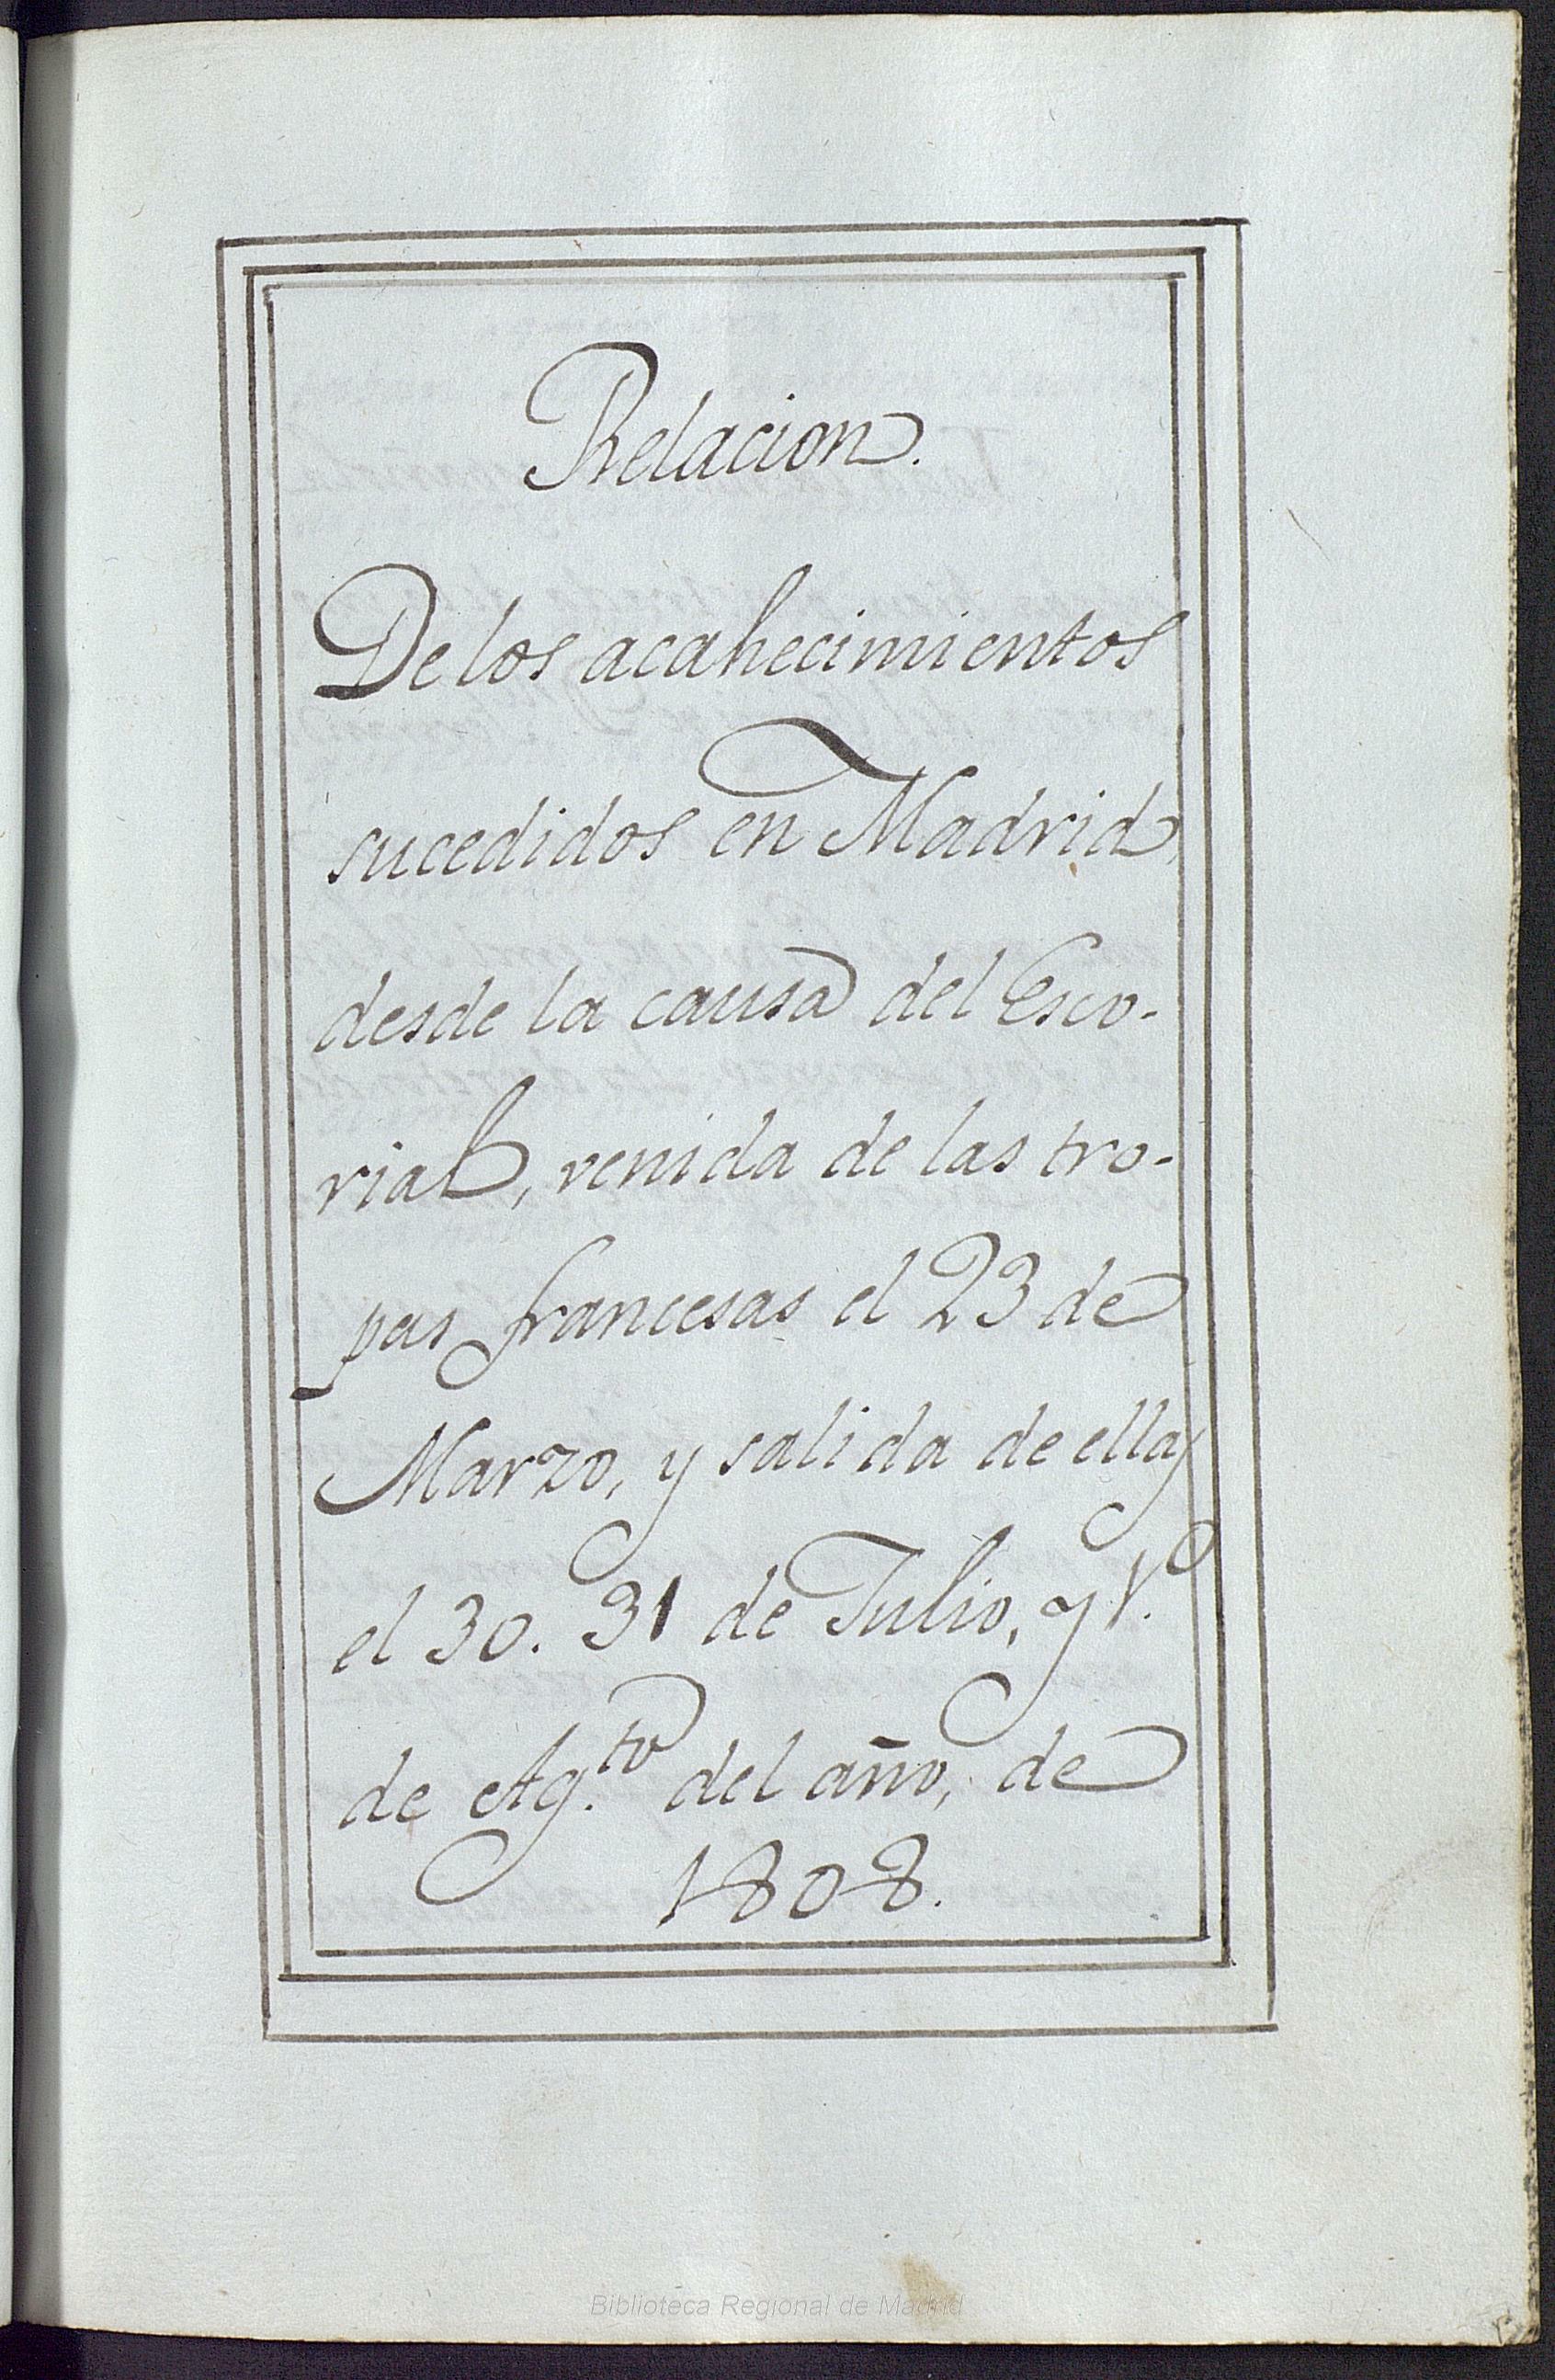 Relacion.
De los acahecimientos
sucedidos en Madrid,
desde la causa del Esco-
rial, venida de las tro-
pas francesas el 23 de
Marzo, y salida de ellas
el 30. 31 de Julio, y 1.º
de Ag.to del año, de
1808.
Biblioteca Regional de Madrid